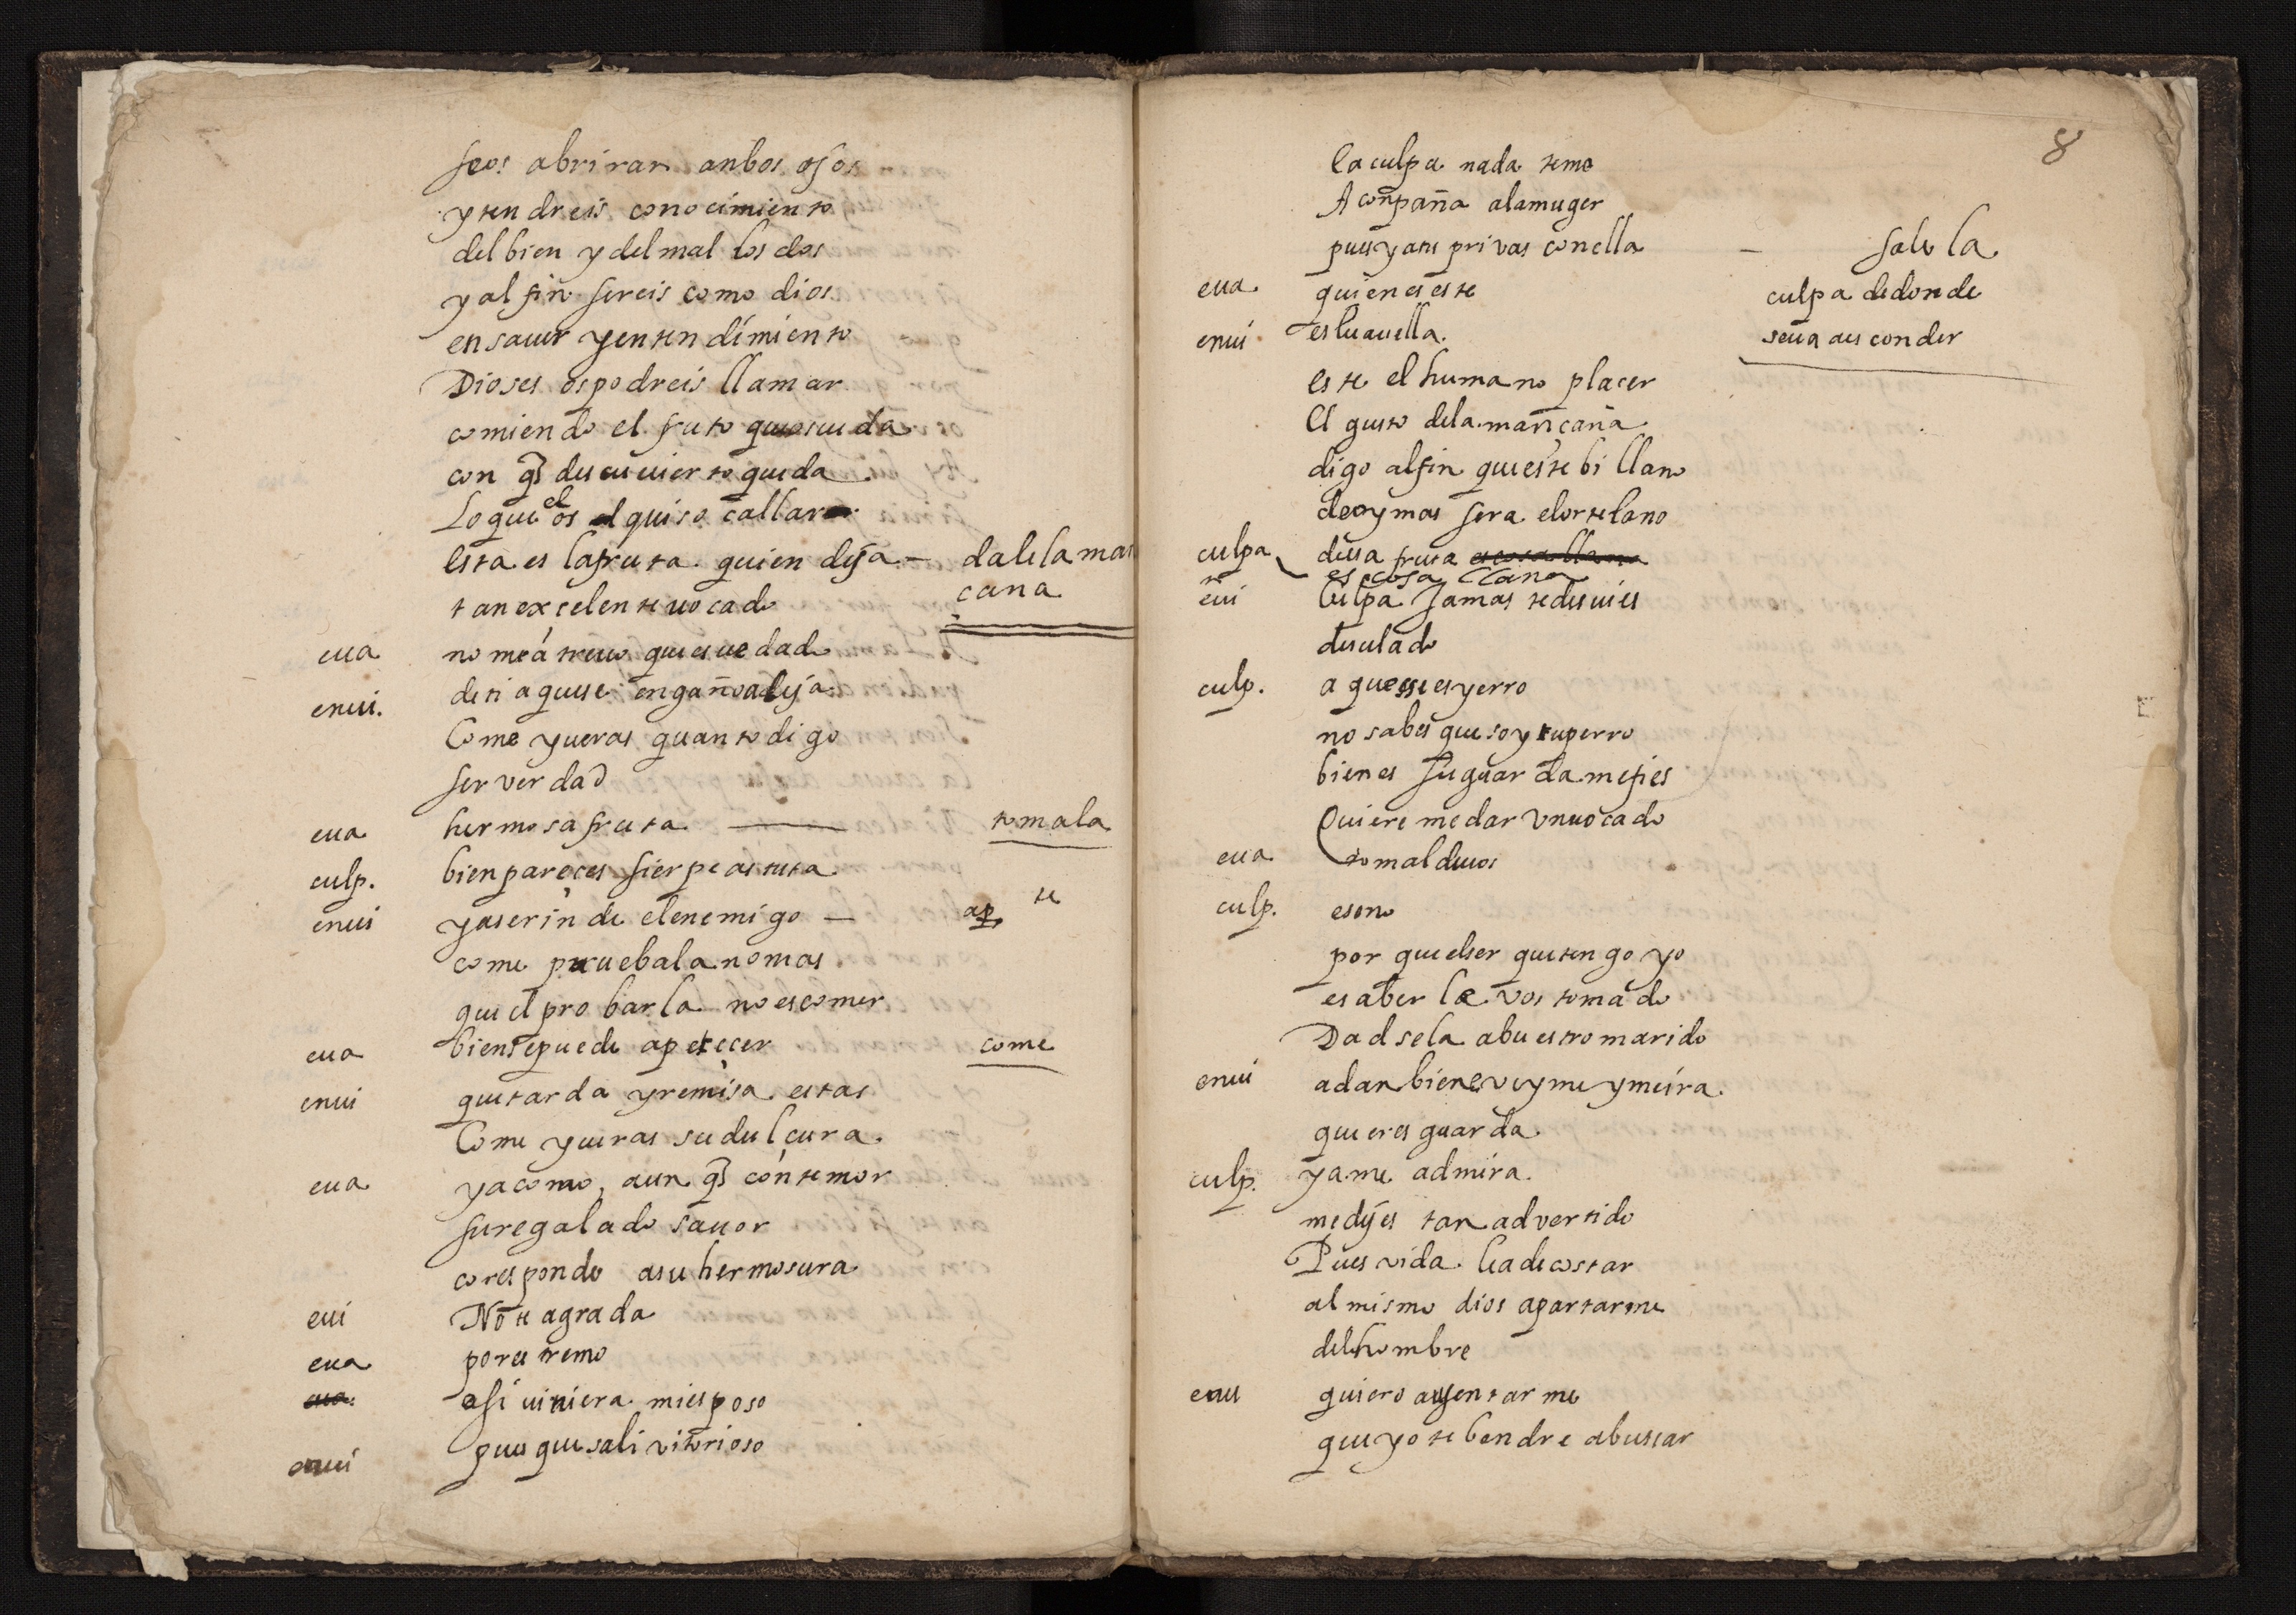 seos abriran anbos ojos
y tendreis conocimiento
del bien y del mal los dos
y al fin sereis como dios
en sauer y entendimiento
Dioses os podreis llamar
comiendo el fruto
con q̃ descuuierto queda
Lo que el os quiso callar
esta es la fruta quien deja — dale la man
tan excelente uocado cana
eua no me atreuo que es uedado
de ti aquese engaño aleja
enui. Come y ueras quanto digo
ser verdad
eua hermosa fruta — tomala
culp. bien pareçes sierpe astuta
enui ya se rinde el enemigo — ap te
come pruebala no mas
que el probarla no es comer
eua bien se puede apetecer come
enui que tarda y remisa estas
Come y ueras su dulçura
eua ya como, aun q̃ con temor
su regalado sauor
coresponde a su hermosura
eui No te agrada
eua por estremo
eua
asi uiniera mi esposo
enui pues que sali vitorioso
8
la culpa nada teme
Aconpaña a la muger
pues ya te privas con ella — sale la
eua. quien es este culpa de donde
enui es lu auella. se ua a esconder
este el humano placer
el gusto de la mançana
digo al fin que este billano
de oy mas sera el ortelano
culpa desa fruta es cosa llana
es cosa llana
eui Culpa Jamas te desuies
de su lado
culp. a que ese es yerro
no sabes que soy tu perro
bien es su guarda me fies
Quiereme dar un uocado
eua tomalde uos
culp. eso no
por que el ser que tengo yo
es aberle vos tomado
Dadsela a buestro marido
enui adan biene voyme y mira
que eres guarda
culp. ya me admira
me dejes tan advertido
Pues vida le a de costar
al mismo dios apartarme
del hombre
enu quiero ausentarme
que yo te bendre a buscar